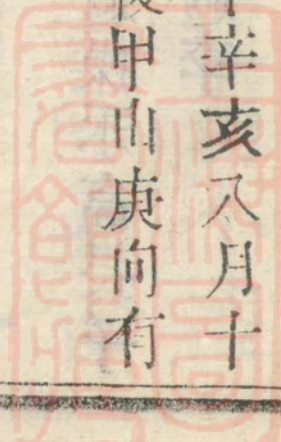 辛亥八月十
甲山庚向有